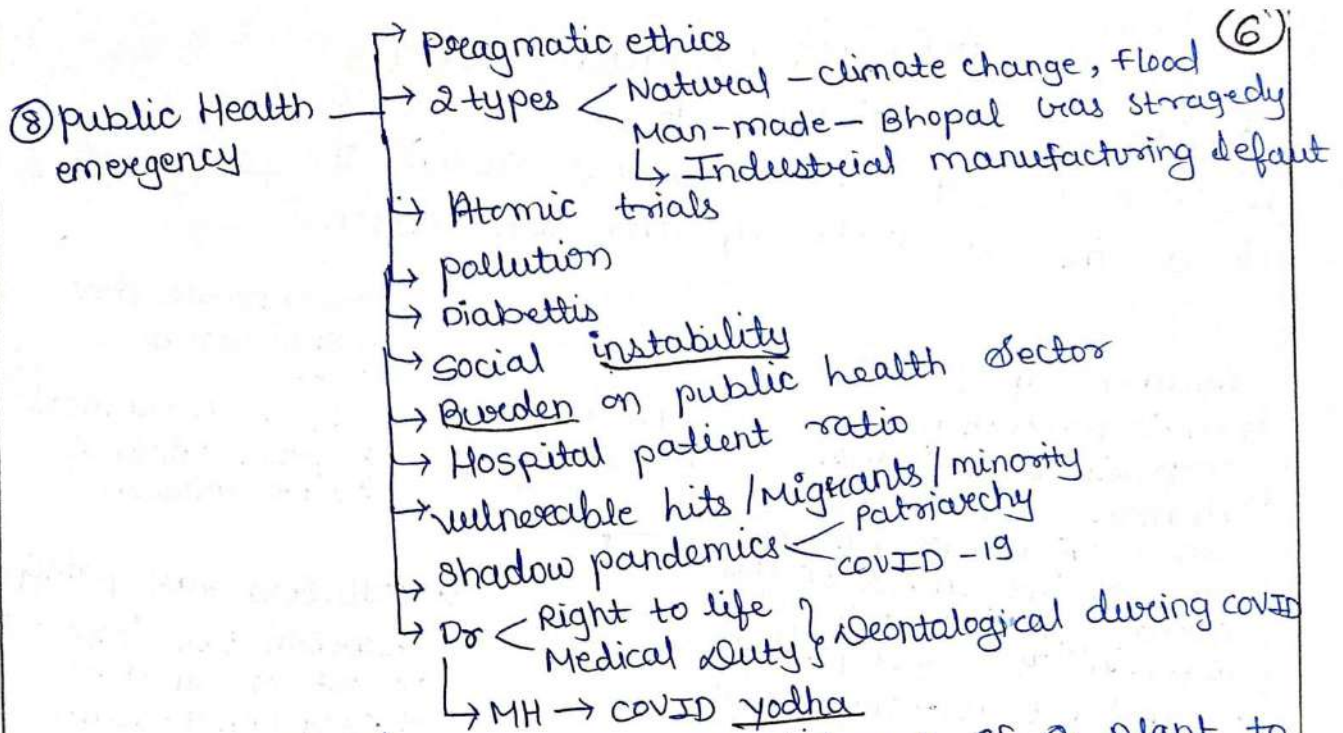 6
→ Preagmatic ethics
⑧ public Health → 2 types < Natural - climate change, flood
emergency Man-made - Bhopal Gas stragedy
↳ Industrial manufacturing defaut
→ Atomic trials
→ pollution
→ Diabettis
→ social instability
→ Burden on public health sector
→ Hospital patient ratio
→ vulnerable hits / Migrants / minority
→ shadow pandemics < Patriarchy
COVID-19
→ Dr < Right to life
Medical Duty } Deontalogical during COVID
↳ MH → COVID yodha
plant to